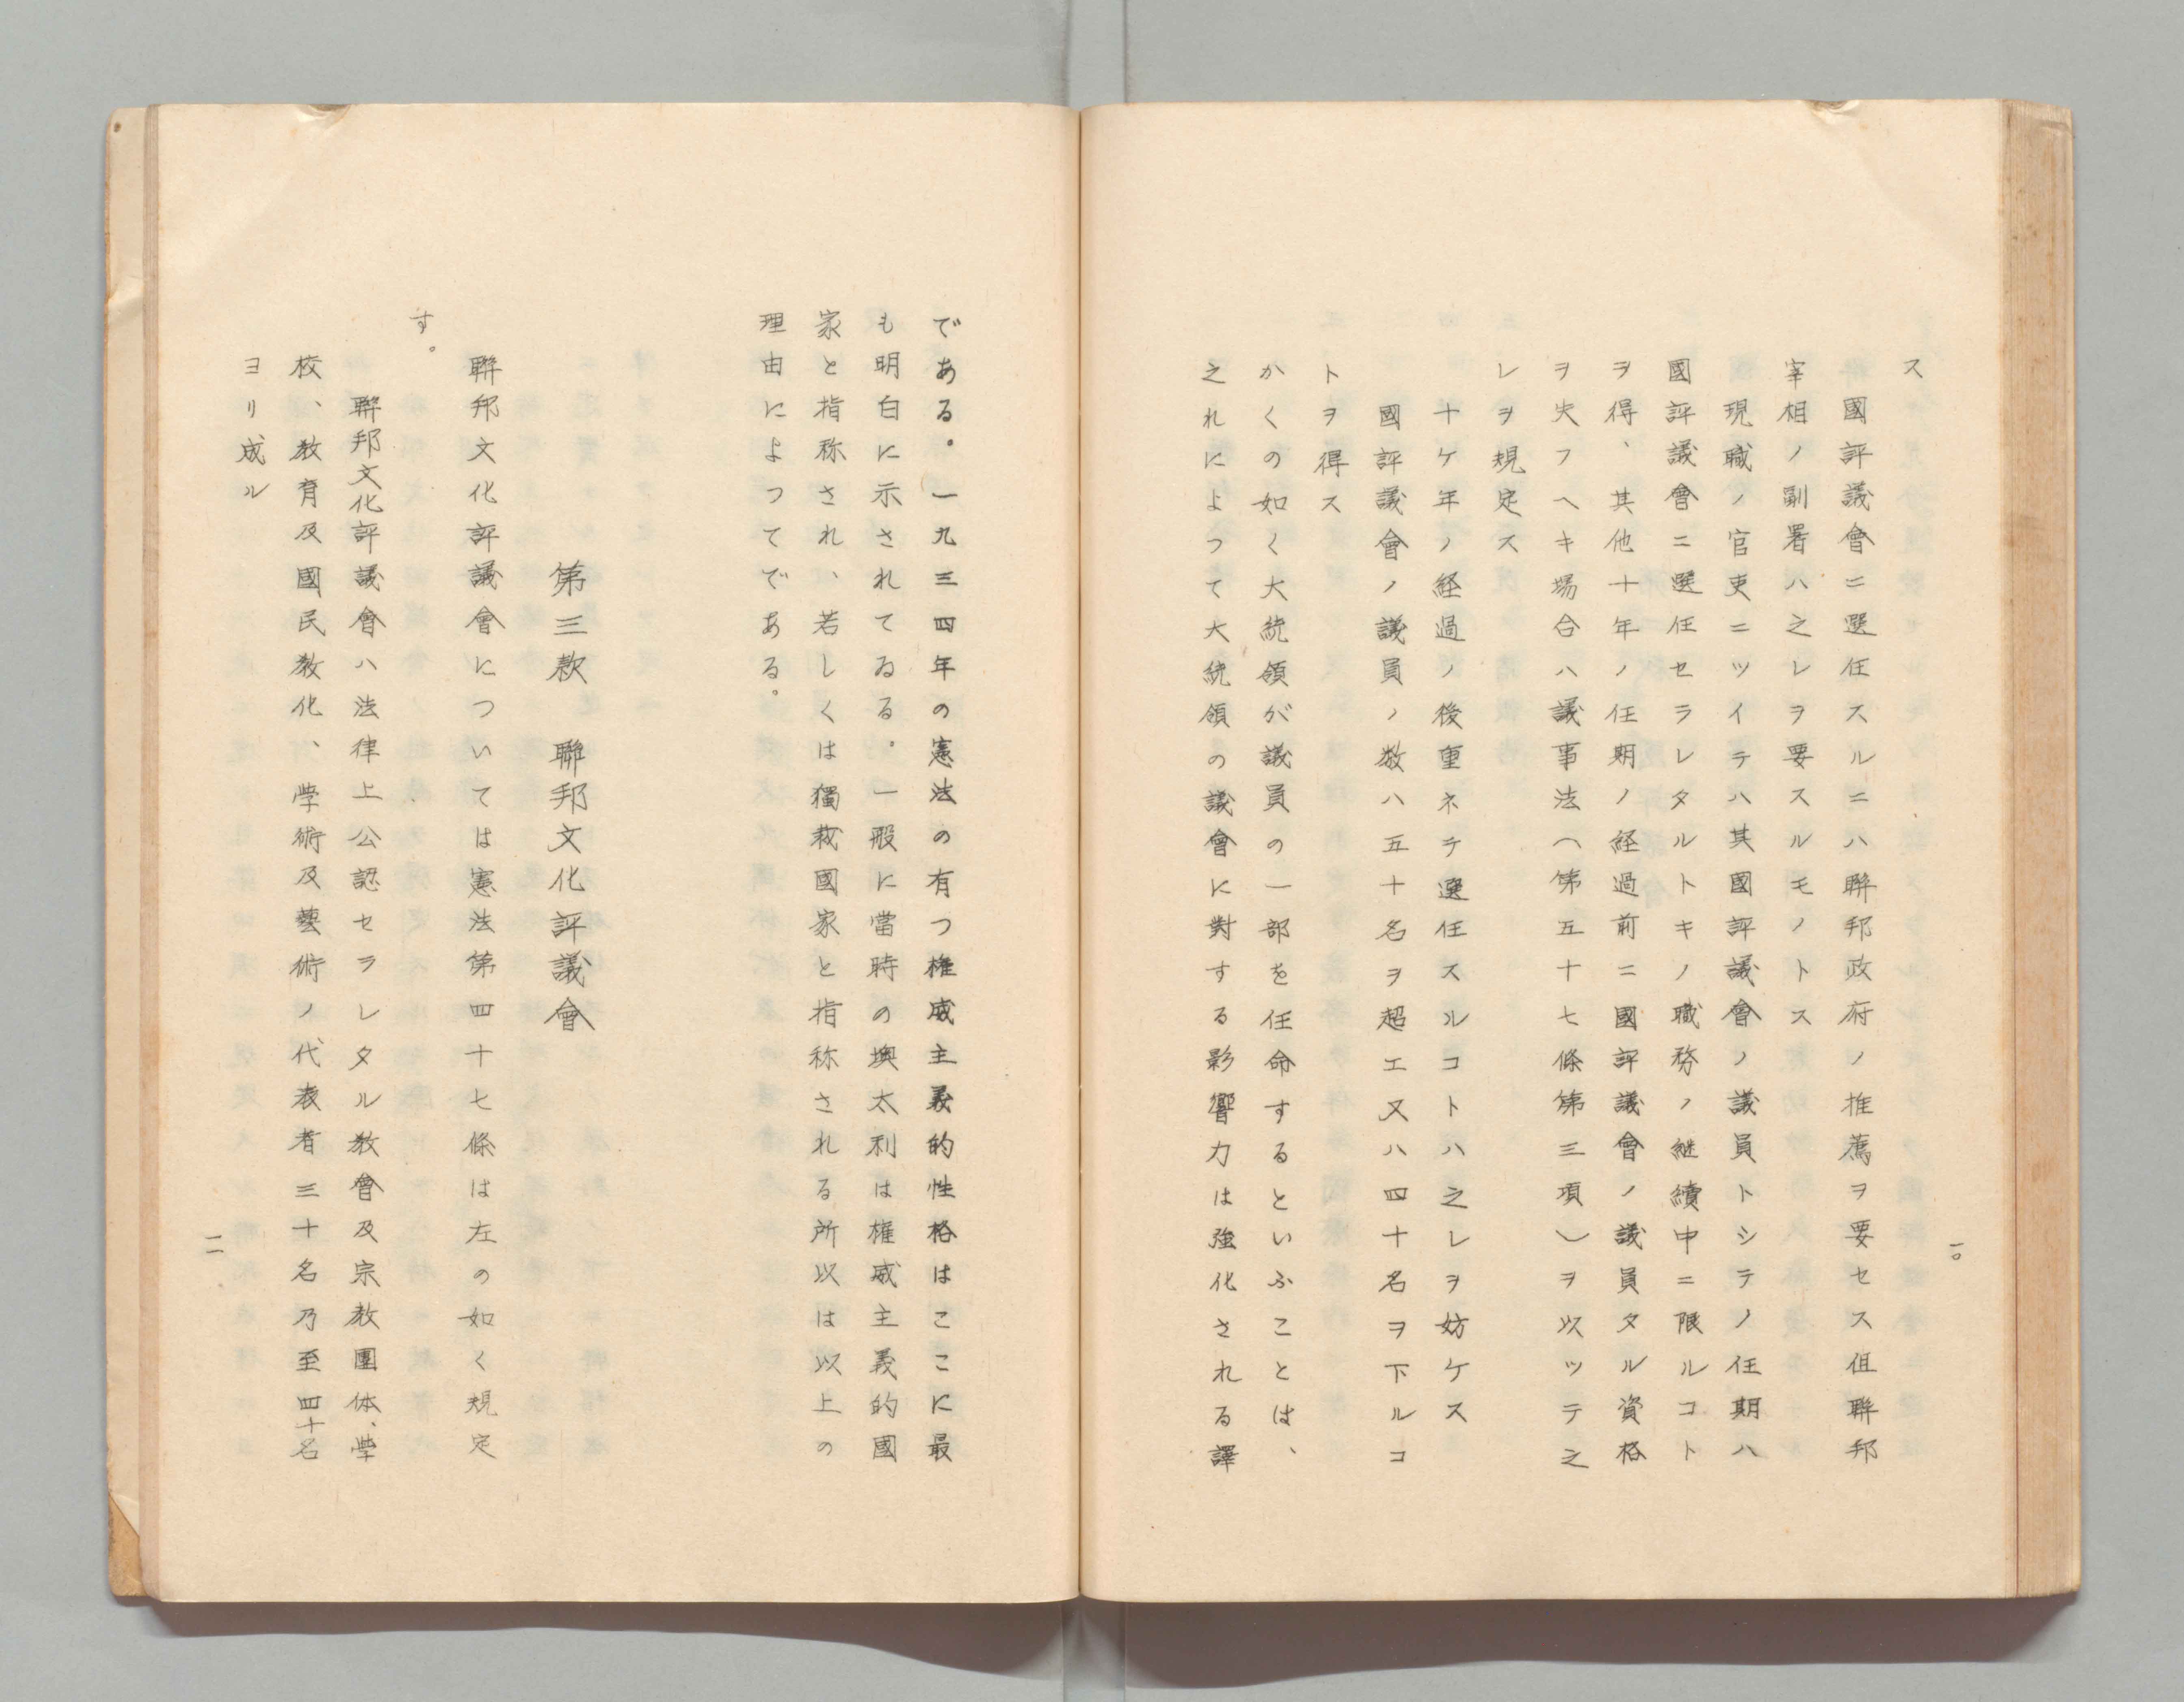 ス
國評議會ニ選任スルニハ聯邦政府ノ推薦ヲ要セス但聯邦
宰相ノ副署ハ之レヲ要スルモノトス
現職ノ官吏ニツイテハ其國評議會ノ議員トシテノ任期ハ
國評議會ニ選任セラレタルトキノ職務ノ継續中ニ限ルコト
ヲ得、其他十年ノ任期ノ経過前ニ國評議會ノ議員タル資格
ヲ失フヘキ場合ハ議事法(第五十七條第三項)ヲ以ッテ之
レヲ規定ス
十ケ年ノ経過ノ後重ネテ選任スルコトハ之レヲ妨ケス
國評議會ノ議員ノ数ハ五十名ヲ超エ又ハ四十名ヲ下ルコ
トヲ得ス
かくの如く大統領が議員の一部を任命するといふことは、
之れによつて大統領の議會に對する影響力は強化される譯
一〇
である。一九三四年の憲法の有つ権威主義的性格はここに最
も明白に示されてゐる。一般に當時の墺太利は権威主義的國
家と指称され、若しくは獨裁國家と指称される所以は以上の
理由によつてである。
第三款 聯邦文化評議會
聯邦文化評議會については憲法第四十七條は左の如く規定
す。
聯邦文化評議會ハ法律上公認セラレタル教會及宗教團体、学
校、教育及國民教化、学術及藝術ノ代表者三十名乃至四十名
ヨリ成ル
一一